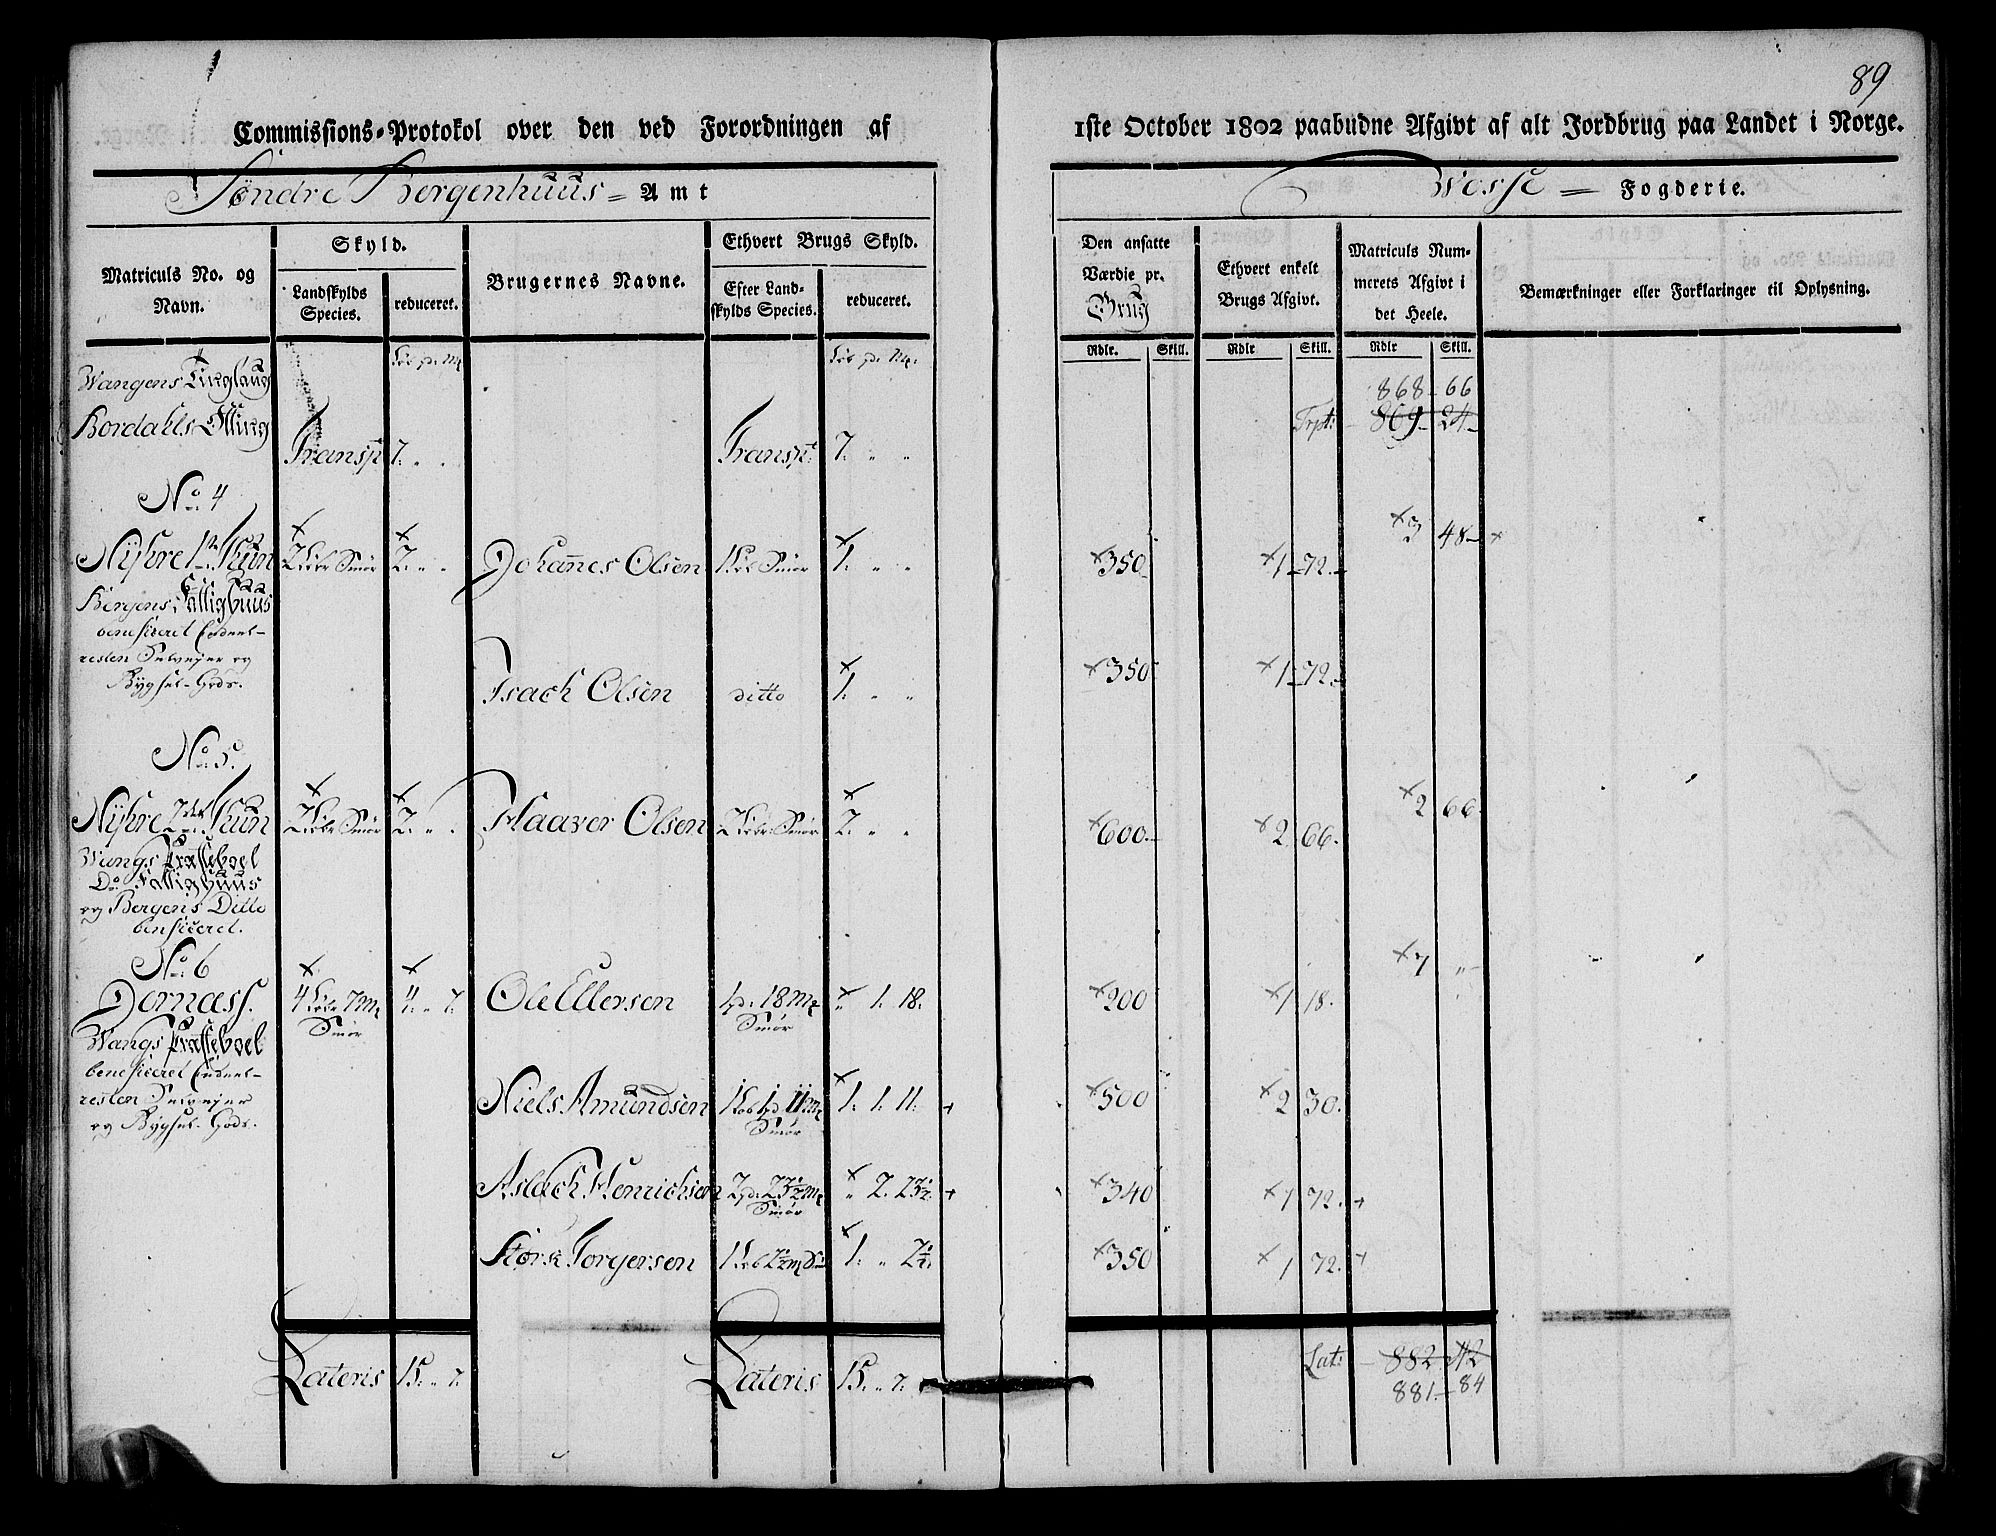 89
Commissions-Protokol over den ved Forordningen af 1ste October 1802 paabudne Afgivt af alt Jordbrug paa Landet i Norge.
Søndre Bergenhuus = Amt
Vosse = Fogderie.
Matriculs No. og Navn.
Skyld.
Landskylds Species.
reduceret.
Brugernes Navne.
Ethvert Brugs Skyld.
Efter Landskylds Species.
reduceret.
Den ansatte Værdie pr. Brug
Ethvert enkelt Brugs Afgivt.
Matriculs Nummerets Afgivt i det Heele.
Bemærkninger eller Forklaringer til Oplysning.
Rdlr. Skill. Rdlr Skill. Rdlr Skill.
Wangens Tinglaug
868 - 66
Bordahls Otting
Trpt: 869 - 24
Transpt 7. " " Transpt: 7. " "
No 4
3 48
Nyhre 1ste Thun 2 Løbr Smør 2. " " Johannes Olsen 1 Løb Smør 1. " " 350 1 72
Bergens Fattighuus
beneficeret Endeel
resten Selveyer og
Bygsel-Gods.
Isach Olsen ditto 1. " " 350 1 72
No 5.
2 66
Nyhre 2det Thun 2 Løbr Smør 2. " " Haaver Olsen 2 Løbr Smør 2. " " 600 2 66.
Wangs Præsteboel
Do Fattighuus
og Bergens Ditto
beneficeret.
No 6
7 "
Dornæss. 4 Løbr 7 mk Smør 4. " 7. Ole Ellersen 1 pd. 18 mk Smør " 1. 18. 200 1 18.
Wangs Præsteboel
beneficeret Endeel
resten Selveyer
og Bygsel-Gods.
Niels Amundsen 1 Løb 1 pd 11 mk Smør 1. 1. 11. 500 2 30.
Aslach Henrichsen 2 pd. 23½ mk Smør " 2. 23½. 340 1 72.
Størk Torgersen 1 Løb 2½ mk Sm 1. " 2½. 350 1 72.
Lateris 15. " 7. Lateris 15. " 7. Lat: 882 42
881 - 84